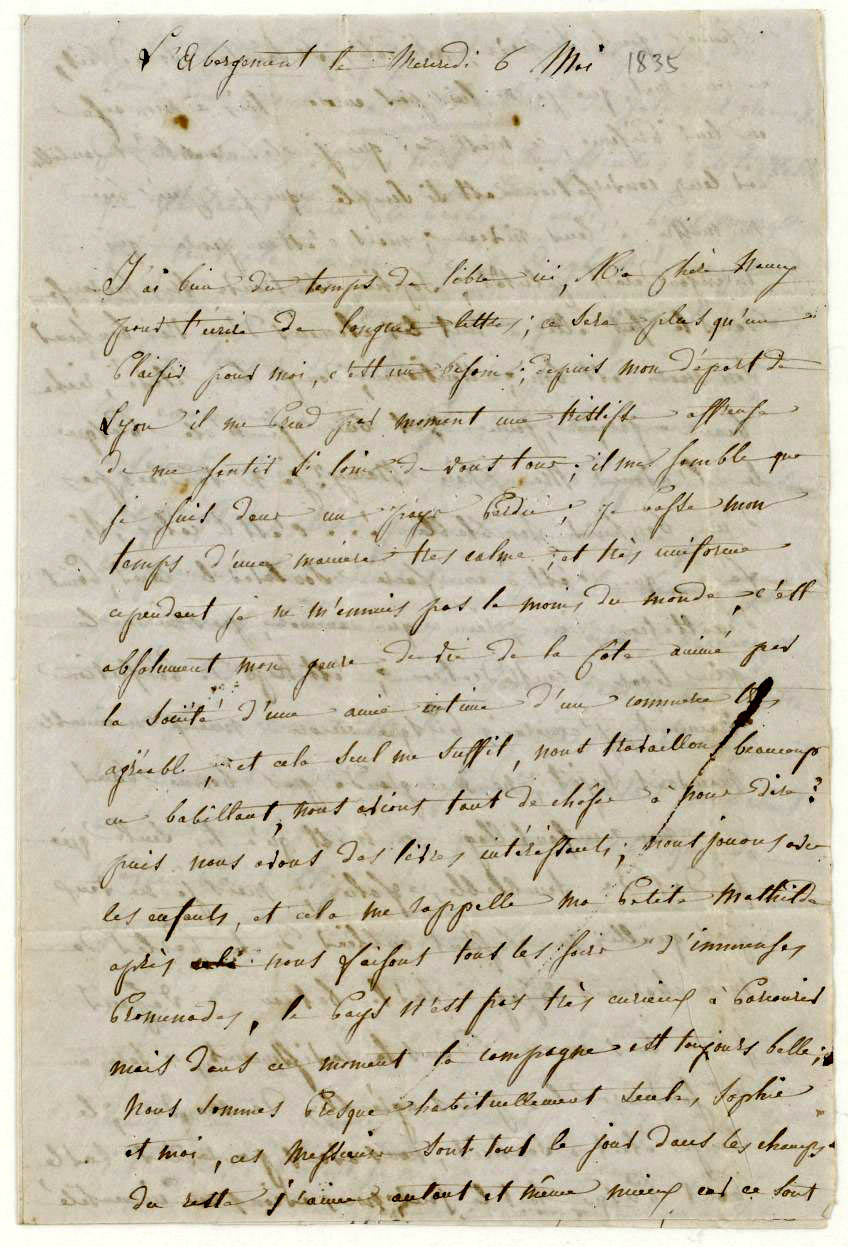 L'Abergement le Mercredi 6 Mai 1835
J'ai bien du temps de libre ici, Ma chère Nancy
pour t'ecrire de longues lettres; ce sera plus qu'un
Plaisir pour moi, c'est un besoin; depuis mon départ de
Lyon il me Prend par moment une tristesse affreuse
de me sentir si loin de vous tous; il me semble que
je suis dans un pays Perdu; je Passe mon
temps d'une maniere tres calme; et très uniforme
cependant je ne m'ennuis pas le moins du monde, c'est
absolument mon genre de vie de la Cote animé par
la Société d'une amie intime d'un commerce très
agréable, et cela seul me suffit, nous travaillons beaucoup
en babillant, nous avions tant de choses à nous dire?
puis nous avons des livres intéréssants; nous jouons avec
les enfants, et cela me rappelle ma Petite Mathilde
après nous faisons tous les soirs d'immenses
Promenades, le Pays n'est pas très curieux à Parcourir
mais dans ce moment la campagne est toujours belle;
Nous sommes Presque habituellement seules, Sophie
et moi, ces Messieurs sont tout le jour dans les champs
du reste j'aime autant et même mieux car ce sont